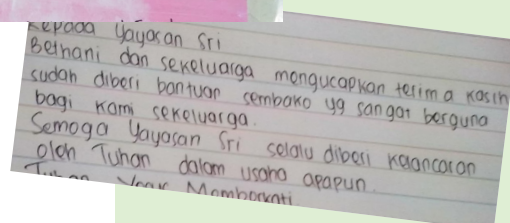 Kepada Yayasan Sri
Bethani dan sekeluarga mengucapkan terima kasih
sudah diberi bantuan sembako yg sangat berguna
bagi kami sekeluarga.
Semoga Yayasan Sri selalu diberi kelancaran
oleh Tuhan dalam usaha apapun.
Tuhan Yesus Memberkati